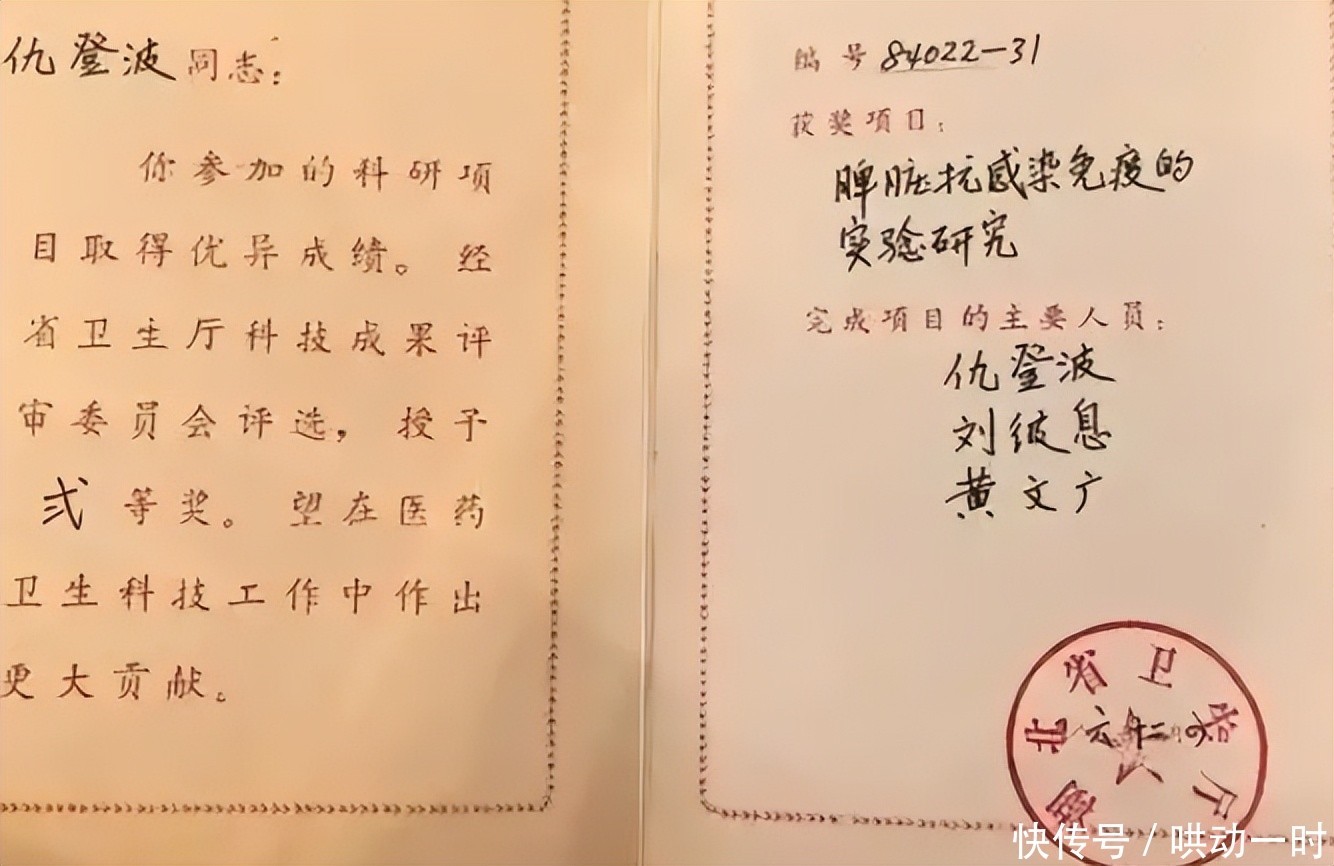 仇登波同志：
你参加的科研项
目取得优异成绩。经
省卫生厅科技成果评
审委员会评选，授予
弍等奖。望在医药
卫生科技工作中作出
更大贡献。
编号 84022-31
获奖项目：
脾脏抗感染免疫的
实验研究
完成项目的主要人员：
仇登波
刘彼息
黄文广
湖北省卫生厅
快传号/哄动一时